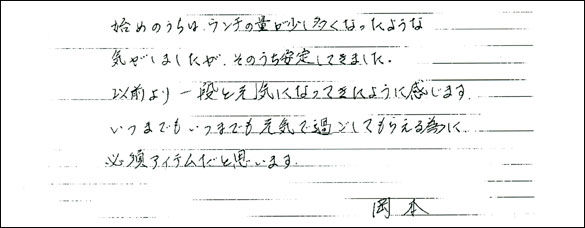 始めのうちは、ウンチの量が少し多くなったような
気がしましたが、そのうち安定してきました。
以前より一段と元気になってきたように感じます。
いつまでもいつまでも元気で過ごしてもらえる為に
必須アイテムだと思います。
岡本